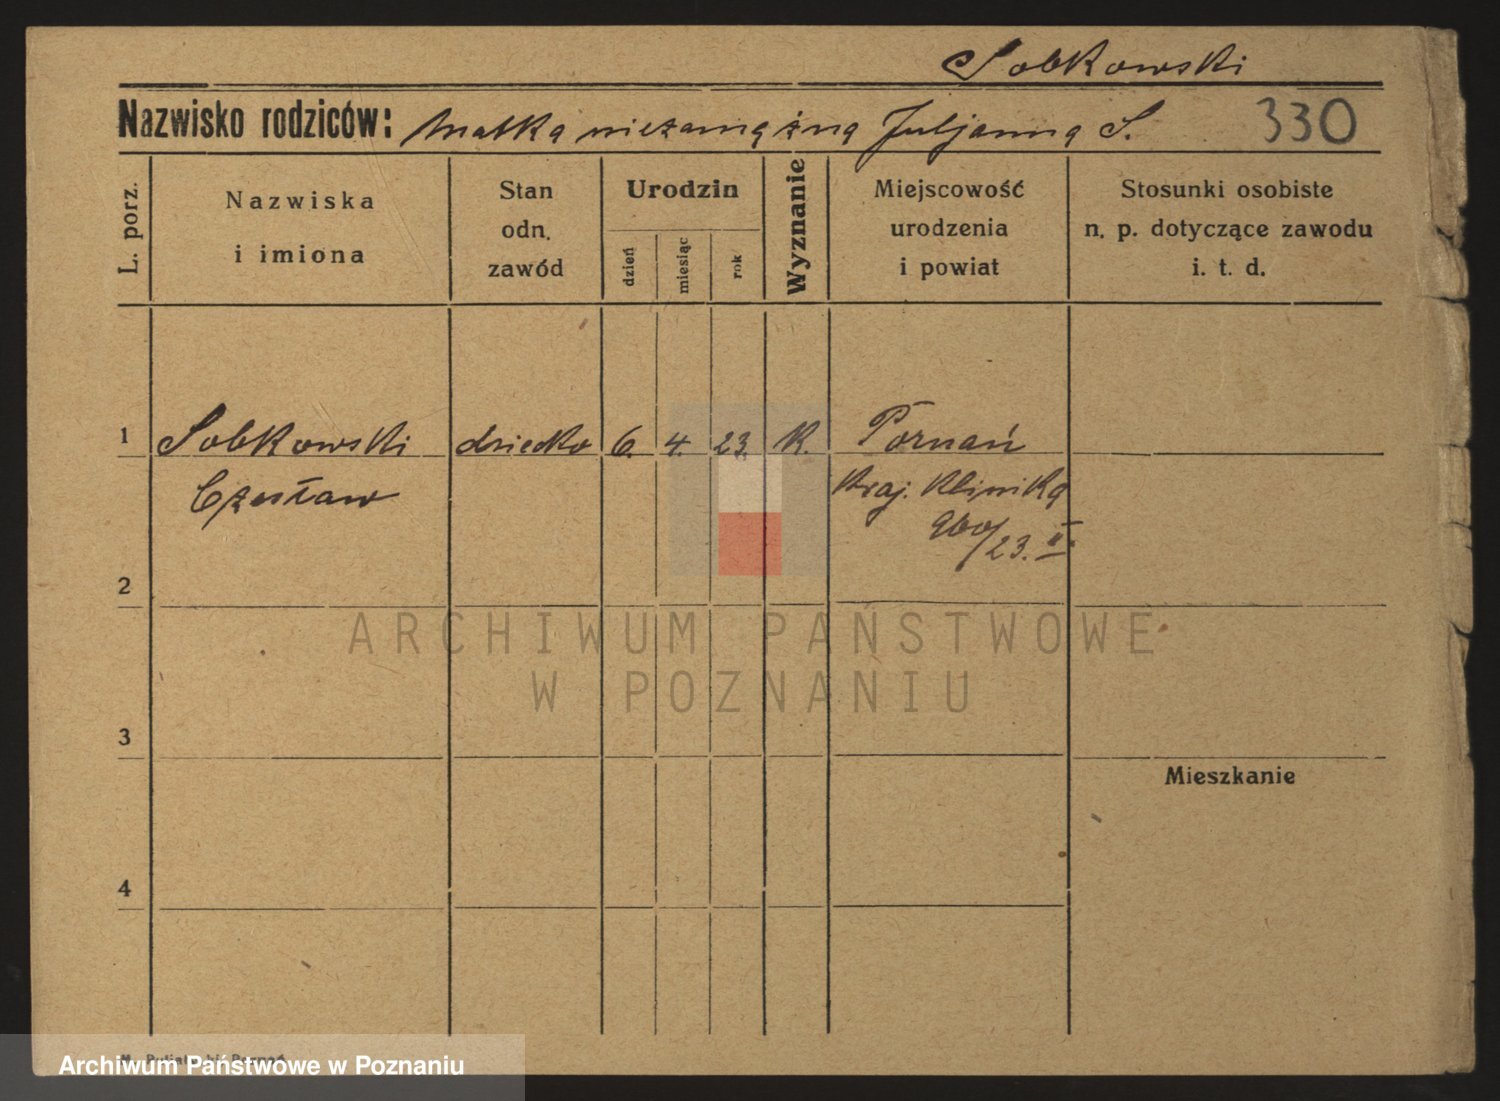 Sobkowski
Nazwisko rodziców: Matka niezamężna Juljanna S. 330
L. porz.
Nazwiska
i imiona
Stan
odn.
zawód
Urodzin
dzień
miesiąc
rok
Wyznanie
Miejscowość
urodzenia
i powiat
Stosunki osobiste
n. p. dotyczące zawodu
i. t. d.
1 Sobkowski dziecko 6. 4. 23. K. Poznań
Czesław Kraj. Klinika
960/23. II.
2
ARCHIWUM PAŃSTWOWE
W POZNANIU
3
Mieszkanie
4
Archiwum Państwowe w Poznaniu